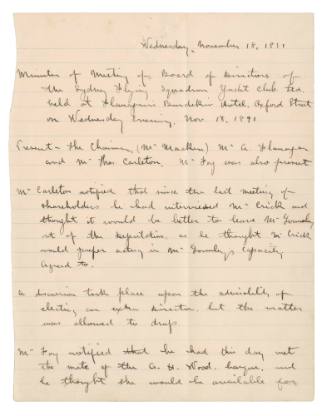 Wednesday, November 18, 1891
Minutes of Meeting of Board of Directors of
the Sydney Flying Squadron Yacht Club Ltd.
held at Flanagan's Hotel, Oxford Street
on Wednesday Evening, Nov 18, 1891
Present - The Chairman (Mr Macken) Mr A Flanagan
and Mr Thos Carleton. Mr Foy was also present
Mr Carleton notified that since the last meeting of
shareholders he had interviewed Mr Crick and
thought it would be better to leave Mr Gormly
out of the deputation as he thought Mr Crick
would prefer acting in Mr Gormly's capacity
Agreed to.
A discussion took place upon the advisability of
electing an extra director, but the matter
was allowed to drop.
Mr Foy notified that he had this day met
the mate of the G. H. Wood, barque, and
he thought she would be available for